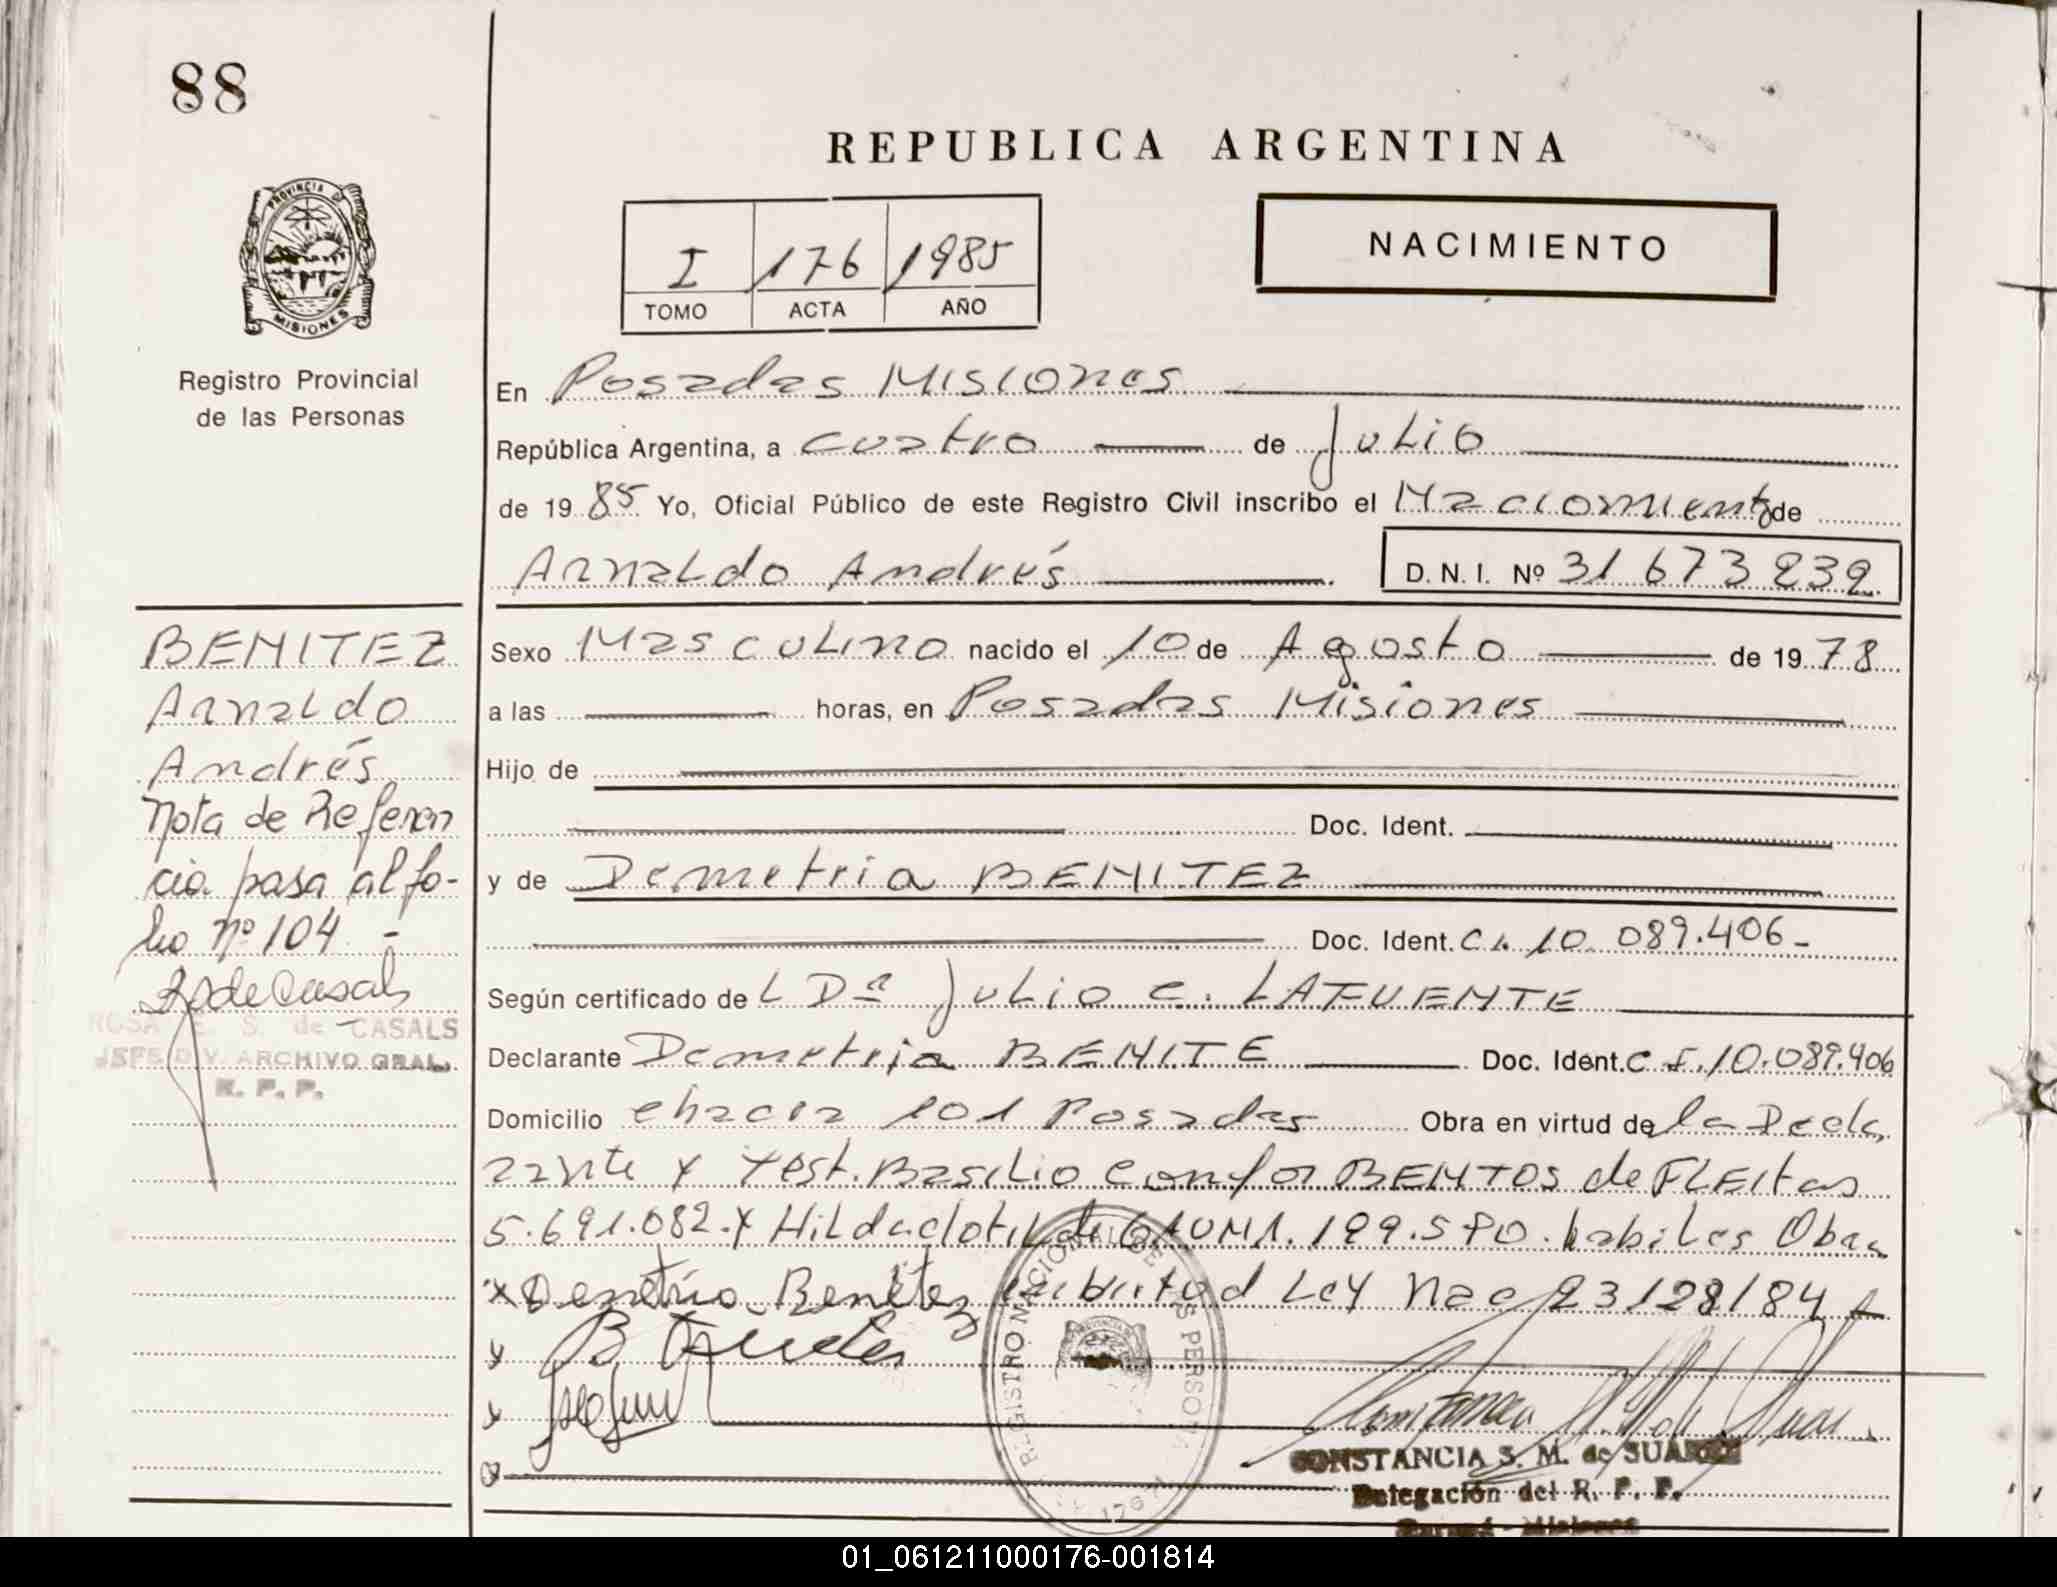 88
REPUBLICA ARGENTINA
PROVINCIA DE
MISIONES
Registro Provincial
de las Personas
I 176 1985
TOMO ACTA AÑO
NACIMIENTO
En Posadas Misiones
República Argentina, a cuatro de Julio
de 19 85 Yo, Oficial Público de este Registro Civil inscribo el Naciomiento de
Arnaldo Andrés D.N.I. Nº 31 673 239
BENITEZ
Arnaldo
Andrés
Nota de Referen
cia pasa al fo-
lio nº 104 -
RSdeCasals
ROSA E. S. de CASALS
JEFE DIV. ARCHIVO GRAL.
R. P. P.
Sexo Masculino nacido el 10 de Agosto de 19 78
a las horas, en Posadas Misiones
Hijo de
Doc. Ident.
y de Demetria BENITEZ
Doc. Ident. C I. 10.089.406-
Según certificado de L Dª Julio C. LAFUENTE
Declarante Demetria BENITE Doc. Ident. C I. 10.089.406
Domicilio chacra 101 Posadas Obra en virtud de la Decla
rante y Test. Basilio BENTOS de FLEItas
5.691.082 y Hilda clotilde GAUNA. habiles Obra
x Demetria Benitez en birtud Ley Nac 23128/84
x B
x
x
REGISTRO NACIONAL DE LAS PERSONAS
CONSTANCIA S. M. de SUAREZ
Delegación del R. P. P.
Misiones
01_061211000176-001814